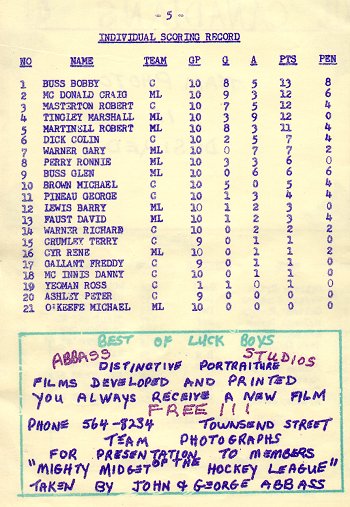 - 5 -
INDIVIDUAL SCORING RECORD
NO NAME TEAM GP G A PTS PEN
1 BUSS BOBBY C 10 8 5 13 8
2 MC DONALD CRAIG ML 10 9 3 12 6
3 MASTERTON ROBERT C 10 7 5 12 4
4 TINGLEY MARSHALL ML 10 3 9 12 0
5 MARTINELL ROBERT ML 10 8 3 11 4
6 DICK COLIN C 10 2 5 7 4
7 WARNER GARY ML 10 0 7 7 2
8 PERRY RONNIE ML 10 3 3 6 0
9 BUSS GLEN ML 10 0 6 6 6
10 BROWN MICHAEL C 10 5 0 5 4
11 PINEAU GEORGE C 10 1 3 4 4
12 LEWIS BARRY ML 10 1 2 3 0
13 FAUST DAVID ML 10 1 2 3 4
14 WARNER RICHARD C 10 0 2 2 2
15 CRUMLEY TERRY C 9 0 1 1 0
16 CYR RENE ML 10 0 1 1 2
17 GALLANT FREDDY C 9 0 1 1 0
18 MC INNIS DANNY C 10 0 1 1 0
19 YEOMAN ROSS C 1 1 0 1 0
20 ASHLEY PETER C 9 0 0 0 0
21 O'KEEFE MICHAEL ML 10 0 0 0 0
BEST OF LUCK BOYS
ABBASS STUDIOS
DISTINCTIVE PORTRAITURE
FILMS DEVELOPED AND PRINTED
YOU ALWAYS RECEIVE A NEW FILM
FREE!!!
PHONE 564-8234 TOWNSEND STREET
TEAM PHOTOGRAPHS
FOR PRESENTATION TO MEMBERS
"MIGHTY MIDGET OF THE HOCKEY LEAGUE"
TAKEN BY JOHN & GEORGE ABBASS